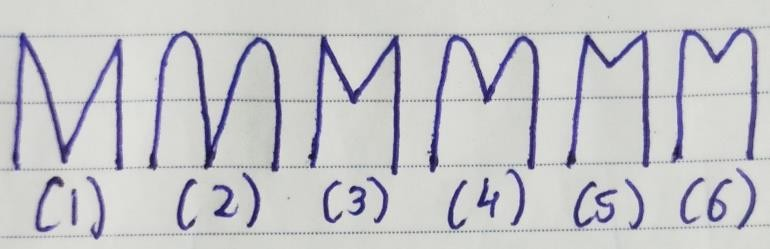 M M M M M M
(1) (2) (3) (4) (5) (6)